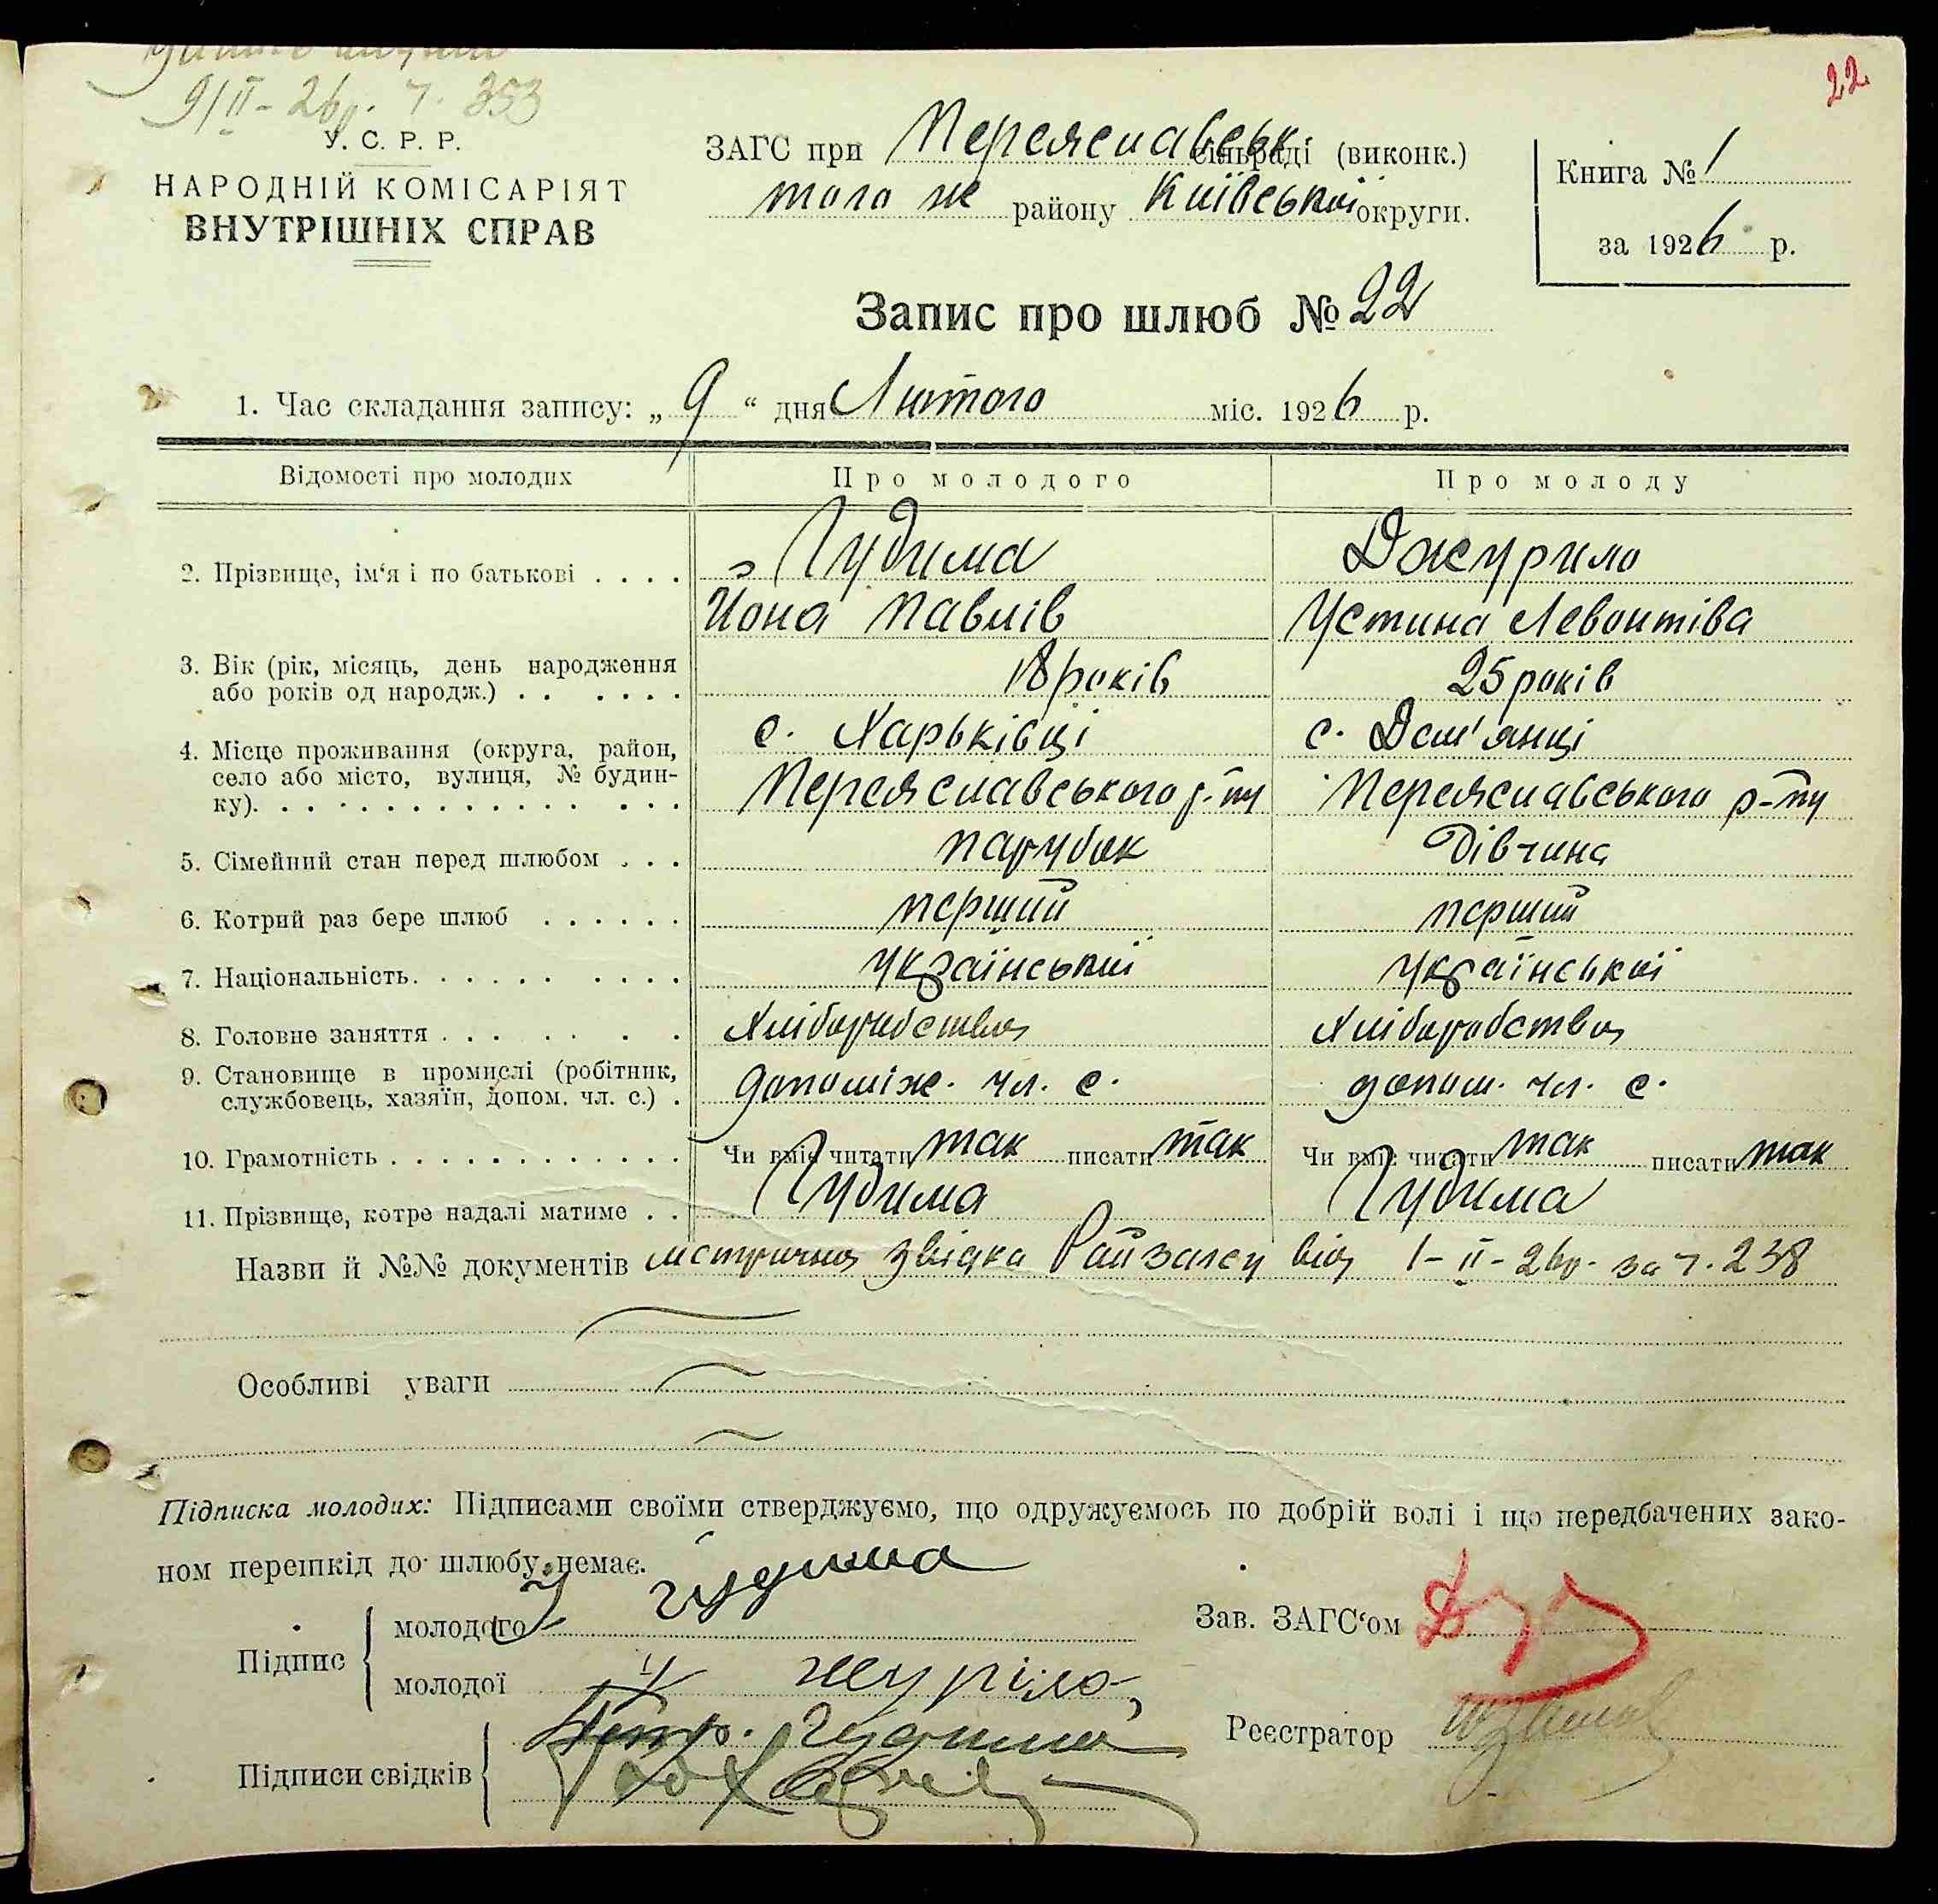 9/II - 26р. ч. 353
22
У. С. Р. Р.
НАРОДНІЙ КОМІСАРІЯТ
ВНУТРІШНІХ СПРАВ
ЗАГС при Переяславськ сільраді (виконк.)
того ж району Київської округи.
Книга № 1
за 1926 р.
Запис про шлюб № 22
1. Час складання запису: „ 9 “ дня Лютого міс. 1926 р.
Відомості про молодих Про молодого Про молоду
2. Прізвище, ім‘я і по батькові . . . . Гудима Джурило
Йона Павлів Устина Левонтіва
3. Вік (рік, місяць, день народження
або років од народж.) . . . . . . 18 років 25 років
4. Місце проживання (округа, район, с. Харьківці с. Дем'янці
село або місто, вулиця, № будин-
ку). . . . . . . . . . . . . . . . Переяславського р-ну Переяславського р-ну
5. Сімейний стан перед шлюбом . . . парубок дівчина
6. Котрий раз бере шлюб . . . . . . перший перший
7. Національність. . . . . . . . . . української української
8. Головне заняття . . . . . . . . Хліборобство Хліборобство
9. Становище в промислі (робітник,
службовець, хазяїн, допом. чл. с.) . допоміж. чл. с. допом. чл. с.
10. Грамотність . . . . . . . . . . . . Чи вміє читати так писати так Чи вміє читати так писати так
11. Прізвище, котре надалі матиме . . Гудима Гудима
Назви й №№ документів метрична звідка Райзагсу від 1-II-26р. за ч. 238
Особливі уваги
Підписка молодих: Підписами своїми стверджуємо, що одружуємось по добрій волі і що передбачених зако-
ном перешкід до шлюбу немає.
Підпис
молодого Й Гудима
молодої У журіло
Зав. ЗАГС‘ом
Реєстратор
Підписи свідків
Гудима